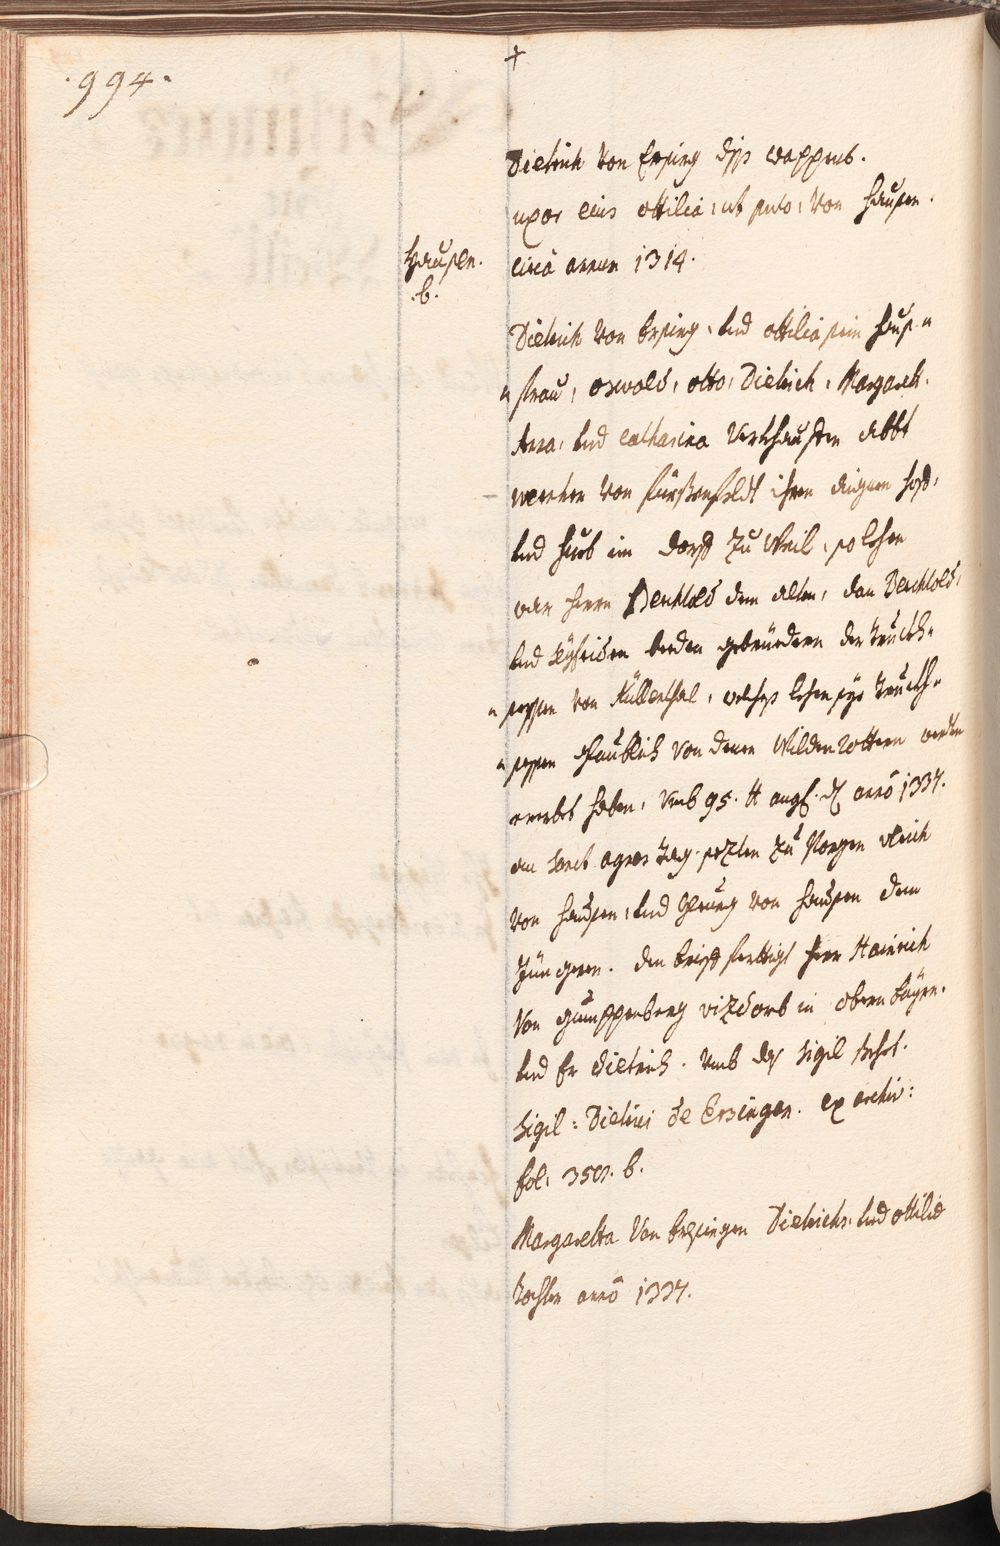 ·994·
+
Dietrich von Ersing diss wappens.
uxor eius ottilia : ut puto : von Hausen.
circa annum 1314.
Hausen.
.b.
Dietrich von Ersing, und ottilia sein Haus=
=frau, oswold, otto, Dietrich, Margareth.
Anna, und catharina verkhaufften abbt
werner von fürstenfeldt ihren aignen hoff,
und hueb im dorff zu Weil, solchen
oder herrn Berchtold dem alten, dan Berchtold,
und Seyfriden beeden gebrüedern der Truckh=
=sessen von Küllenthal, welches lehen sye Truckh=
=sessen glaublich von denen Wildenrottern werden
ererbet haben, umb 95. ℔ augs. ₰ anno 1337.
an sanct agnes tag. sezten zu Porgen ulrich
von hausen, und von hausen dem
Jüngeren. den brieff ferttigt herr Hainrich
von gumppenberg vizdomb in obern bayrn.
und Er dietrich. umb das sigil stehet.
Sigil : Dietrici de Ersingen. ex archiv:
fol. b.
Margaretha von Erssingen Dietrichs, und ottilia
tochter anno 1337.